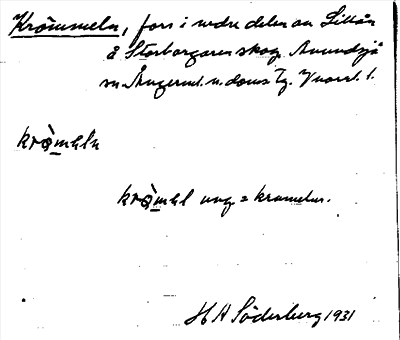 Krömmeln, fors i nedre delen av Lillån
å Storborgaren skog. Anundsjö
sn. Ångerml. n. doms Tg. Y norrl. l.
krò̱mɐln
krò̱mɐl ung = krumelur.
H A Söderberg 1931